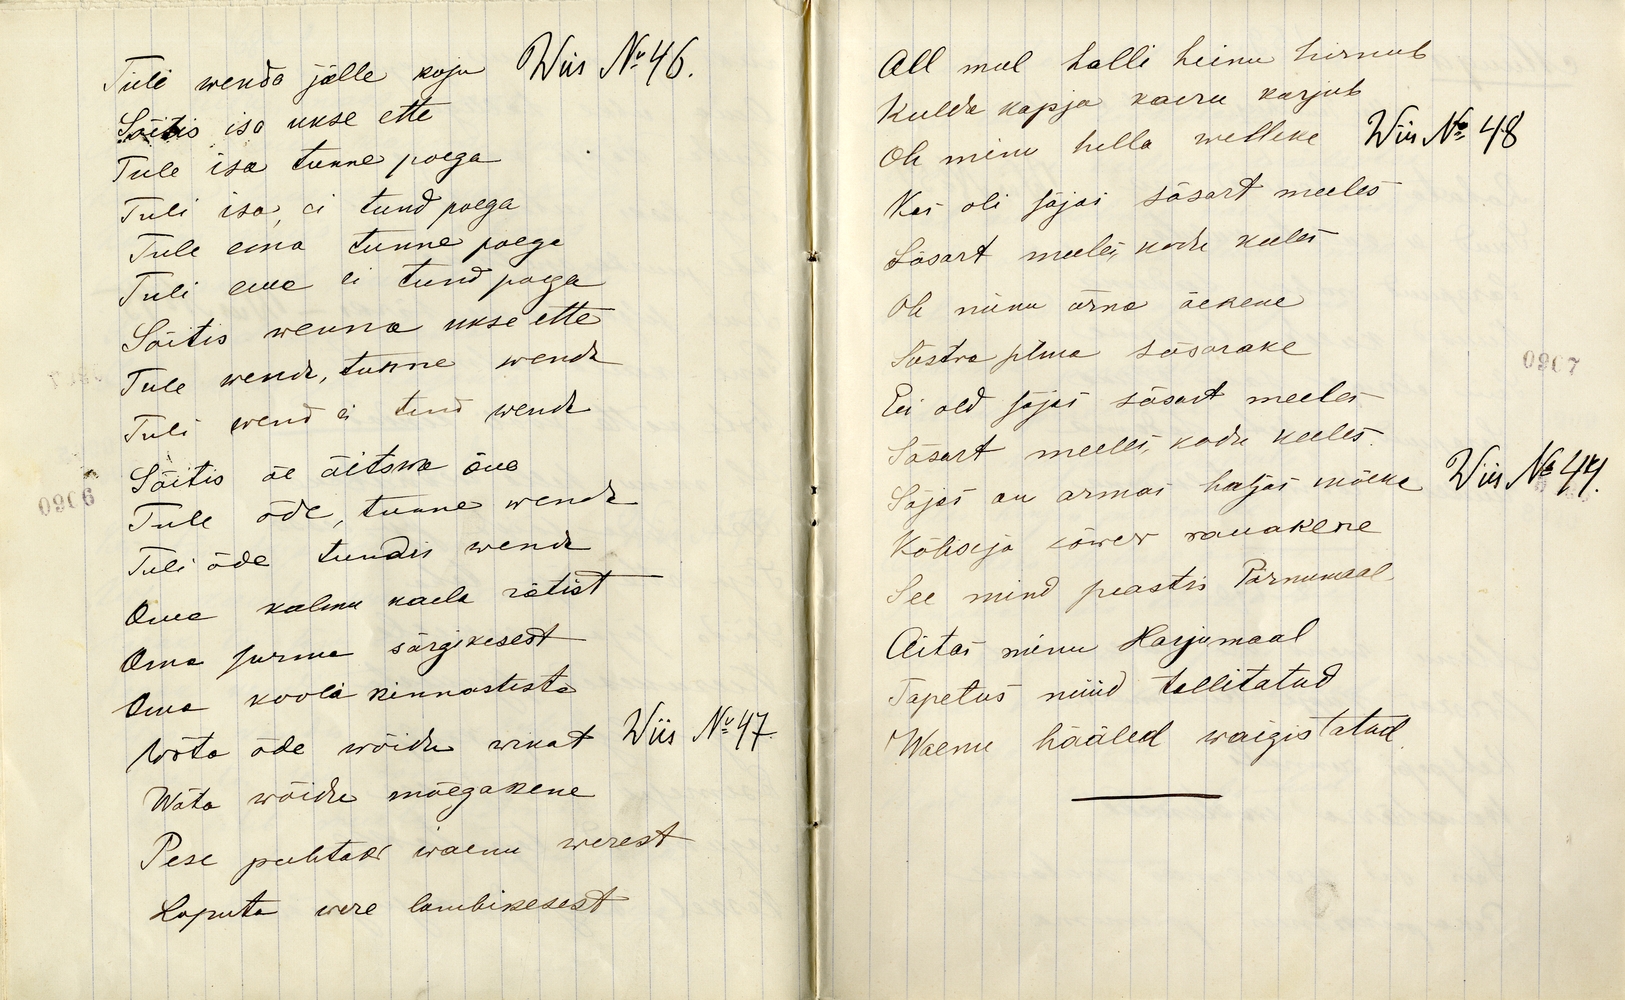 Tuli wenda jälle koju Wiis № 46.
Sõitis isa ukse ette
Tule isa tunne poega
Tuli isa, ei tund poega
Tule ema tunne poega
Tuli ema ei tund poega
Sõitis wenna ukse ette
Tule wend, tunne wenda
Tuli wend ei tund wenda
Sõitis õe õitswa õue
Tule õde, tunne wenda
Tuli õde tundis wenda
Oma kalmu kaela rätist
Oma surma särgikesest
Oma koola kinnastista
Wõta õde wõidu wikat Wiis № 47
Wõta wõidu mõegakene
Pese puhtaks waenu werest
Loputa were lombikesest
0906
All mul halli heinu hirnub
Kulda kapja kaeru karjub
Oh minu hella welleke Wiis № 48
Kas oli sõjas sõsart meeles
Sõsart meeles, kodu keeles
Oh minu õrna õekene
Sõstra silma sõsarake
Ei old sõjas sõsart meeles
Sõsart meeles, kodu keeles.
Sõjas on armas haljas mõeke Wiis № 44.
Kõliseja kõwer rauakene
See mind peastis Pärnumaal
Aitas minu Harjumaal
Tapetus nüüd tallitatud
Waenu hääled waigistatud.
0907